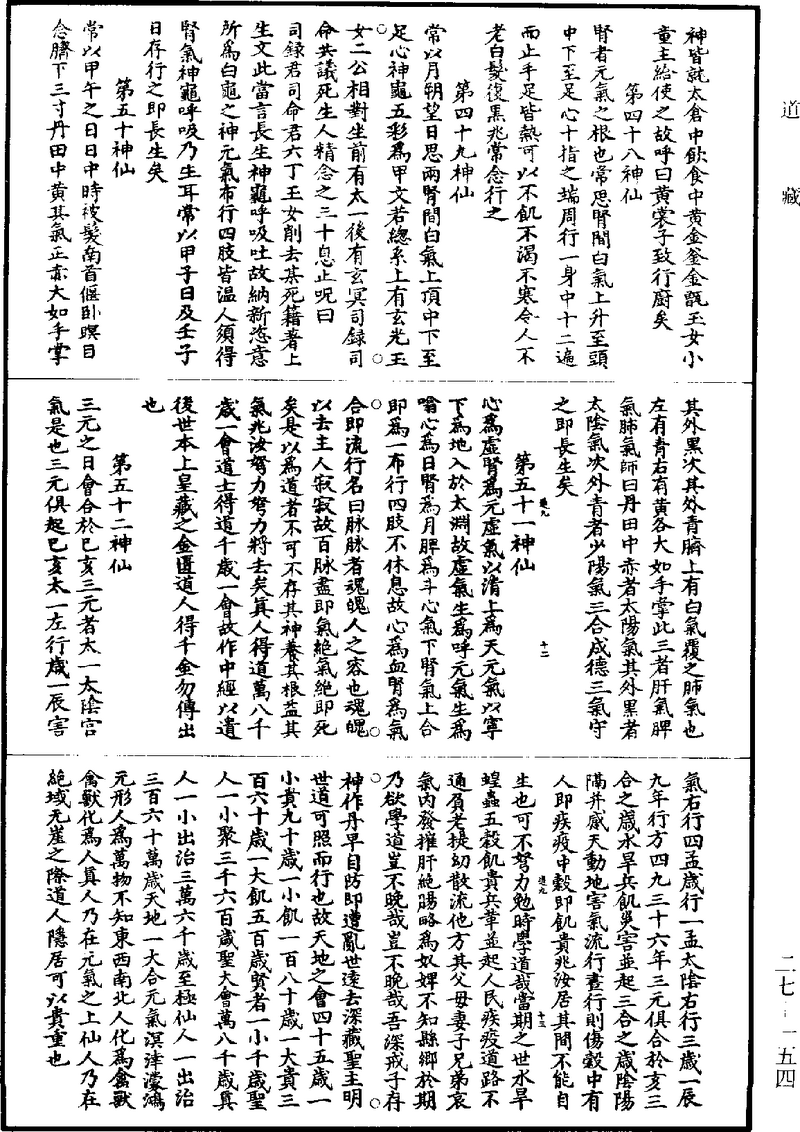 道藏
神皆就太倉中飲食中黃金釜金甑玉女小
童主給使之故呼曰黃裳子致行廚矣
第四十八神仙
腎者元氣之根也常思腎間白氣上升至頭
中下至足心十指之端周行一身中十二遍
而止手足皆熱可以不飢不渴不寒令人不
老白髮復黑兆常念行之
第四十九神仙
常以月朔望日思兩腎間白氣上頂中下至
足心神龜五彩為甲文若總系上有玄光玉
女二公相對坐前有太一後有玄冥司錄司
命共議死生人精念之三十息止呪曰
司錄君司命君六丁玉女削去某死籍著上
生文此當言長生神龜呼吸吐故納新恣意
所為白龜之神元氣布行四肢皆溫人須得
腎氣神龜呼吸乃生耳常以甲子日及壬子
日存行之即長生矣
第五十神仙
常以甲午之日日中時被髮南首偃臥瞑目
念臍下三寸丹田中黃其氣正赤大如手掌
其外黑次其外青臍上有白氣覆之肺氣也
左有青右有黃各大如手掌此三者肝氣脾
氣肺氣師曰丹田中赤者太陽氣其外黑者
太陰氣次外青者少陽氣三合成德三氣守
之即長生矣
十二
第五十一神仙
心為虛腎為元虛氣以清上為天元氣以寧
下為地入於太淵故虛氣生為呼元氣生為
噏心為日腎為月脾為斗心氣下腎氣上合
即為一布行四肢不休息故心為血腎為氣
合即流行名曰脉脉者魂魄人之容也魂魄
以去主人寂寂故百脉盡即氣絕氣絕即死
矣是以為道者不可不存其神養其根益其
氣兆汝努力努力將去矣真人得道萬八千
歲一會道士得道千歲一會故作中經以遺
後世本上皇藏之金匱道人得千金勿傳出
也
第五十二神仙
三元之日會合於巳亥三元者太一太陰害
氣是也三元俱起巳亥太一左行歲一辰害
氣右行四孟歲行一孟太陰右行三歲一辰
九年行方四九三十六年三元俱合於亥三
合之歲水旱兵飢災害並起三合之歲陰陽
隔并感天動地害氣流行晝行則傷穀中有
人即疾疫中穀即飢貴兆汝居其間不能自
十三
生也可不努力勉時學道哉當期之世水旱
蝗蟲五穀飢貴兵革並起人民疾疫道路不
通負老提幼散流他方其父母妻子兄弟哀
氣內發摧肝絕腸略為奴婢不知縣鄉於期
乃欲學道豈不晚哉豈不晚哉吾深戒子存
神作丹早自防即遭亂世遠去深藏聖主明
世道可照而行也故天地之會四十五歲一
小貴九十歲一小飢一百八十歲一大貴三
百六十歲一大飢五百歲賢者一小千歲聖
人一小聚三千六百歲聖大會萬八千歲真
人一小出治三萬六千歲至極仙人一出治
三百六十萬歲天地一大合元氣溟涬濛鴻
元形人為萬物不知東西南北人化為禽獸
禽獸化為人真人乃在元氣之上仙人乃在
絕域无崖之際道人隱居可以貴重也
二七-一五四